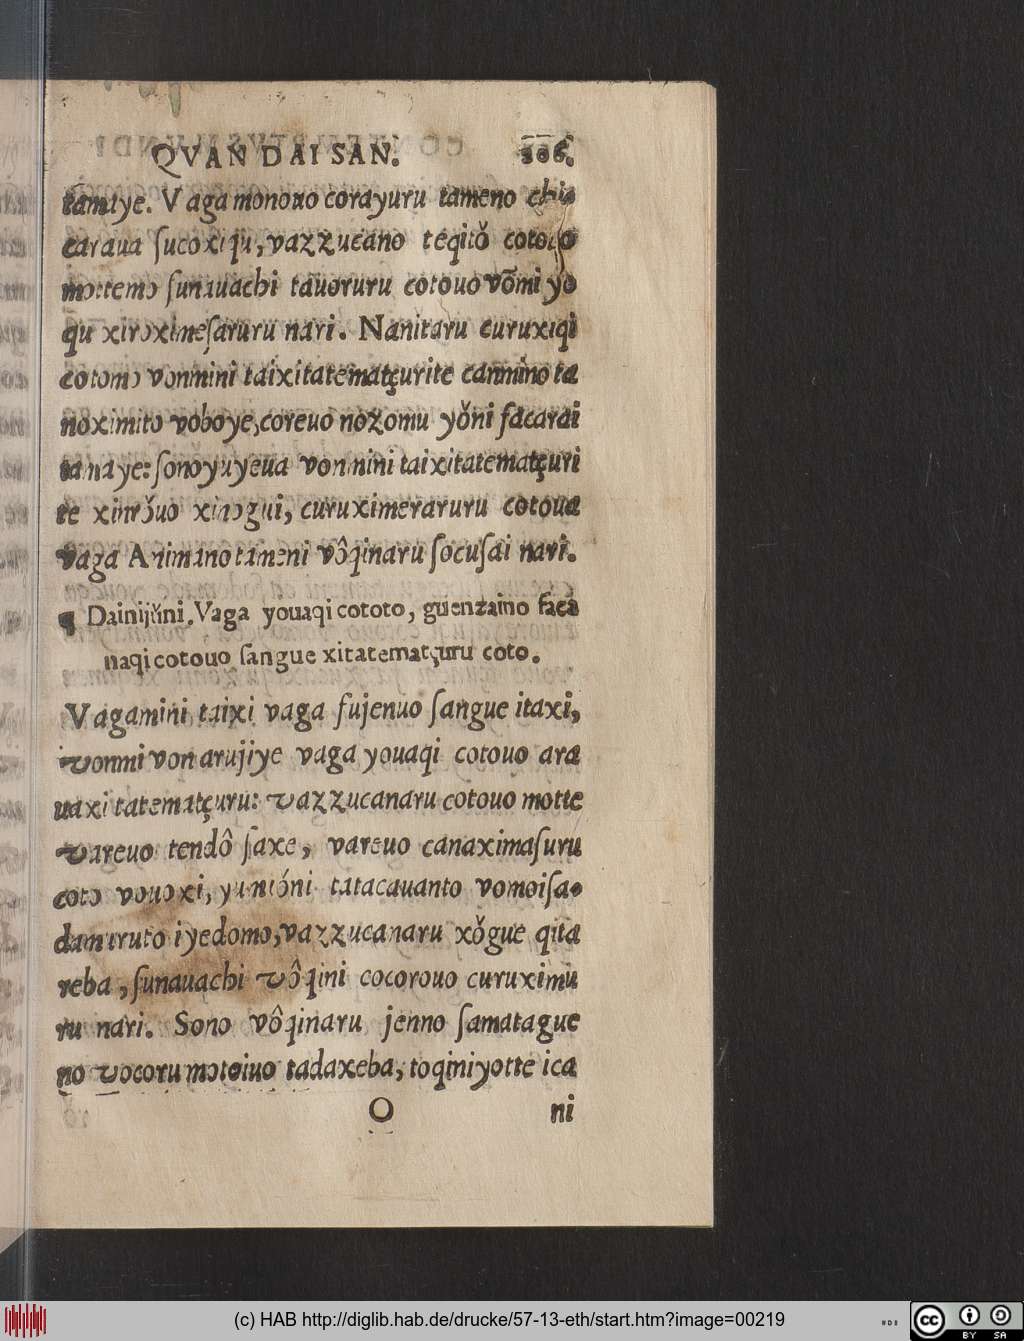 QVAN DAI SAN. 106.
tamiye. Vaga monouo corayuru tameno chi
caraua ſucoxiqu, vazzucano teqitǒ cotoua
mottemo ſunauachi tauoruru cotouo võmi yo
qu xiroximeſaruru nari. Nanitaru curuxiqi
cotomo vonmini taixitatematçurite canninota
noximito voboye, coreuo nozomu yǒni facarai
tanaye: ſonoyuyeua vonmini taixitatematçuri
te xinrǒuo xinogui, curuximeraruru cotoua
vaga Animano tameni vôqinaru ſocuſai nari.
¶ Dainijŭni. Vaga youaqi cototo, guenzaino facà
naqi cotouo ſangue xitatematçuru coto.
Vagamini taixi vaga fujenuo ſangue itaxi,
vonmi von arujiye vaga youaqi cotouo ara
uaxi tatematçuru: vazzucanaru cotouo motte
vareuo tendô ſaxe, vareuo canaximaſuru
coto vouoxi, yumiǒni tatacauanto vomoiſa-
damuruto iyedomo, vazzucanaru xǒgue qita
reba, ſunauachi vôqini cocorouo curuximu
ru nari. Sono vôqinaru jenno ſamatague
no vocoru motoiuo tadaxeba, toqiniyotte ica
O ni
(c) HAB http://diglib.hab.de/drucke/57-13-eth/start.htm?image=00219
cc BY SA